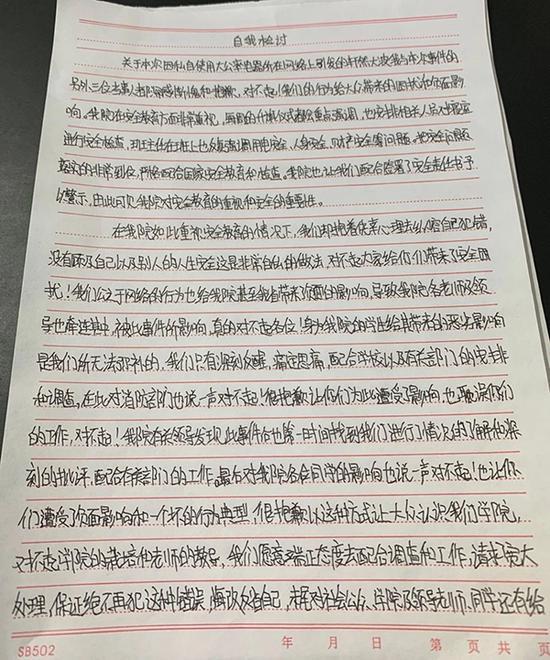 自我检讨
关于本次因私自使用大公率电器所在网络上引发的轩然大波我与本次事件的
另外三位当事人都深感惭愧和抱歉，对不起！我们的行为给大众带来的困扰和负面影
响。我院在安全教育方面非常重视，每周的什机仪式都会重点强调，也安排相关人员对寝室
进行安全检查，班主任在班上也反复强调用电安全、人身安全、财产安全等问题。把安全问题
落实的非常到位，严格配合国家安全教育和检查。我院也让我们配合签署了安全责任书予
以警示，由此可见我院对安全教育的重视和安全的重要性。
在我院如此重视安全教育的情况下，我们却抱着侥幸心理去纵容自己犯错，
没有顾及自己以及别人的人生安全这是非常自私的做法，对不起大家给你们带来了安全困
扰！我们公之于网络的行为也给我院甚至我省带来了负面的影响，导致我院各老师及领
导也牵连其中，被此事件所影响，真的对不起各位！身为我院的学生给其带来的恶劣影响
是我们所无法弥补的，我们只有深刻反醒，痛定思痛，配合学校以及有关部门的安排
和调查，在此对消防部门也说一声对不起！很抱歉让你们为此遭受了影响，也耽误你们
的工作，对不起！我院有关领导发现此事件后也第一时间找到我们进行了情况的了解和深
刻的批评，配合有关部门的工作。最后对我院各位同学的影响也说一声对不起！也让你
们遭受了负面影响和一个坏的行为典型，很抱歉以这种方式让大众认识我们学院，
对不起学院的栽培和老师的教导，我们愿意端正态度去配合调查和工作，请求宽大
处理，保证绝不再犯这种错误，悔改反省自己，未来对社会公众、学院及领导老师、同学还有给
SB502 年 月 日 第 页 共 页